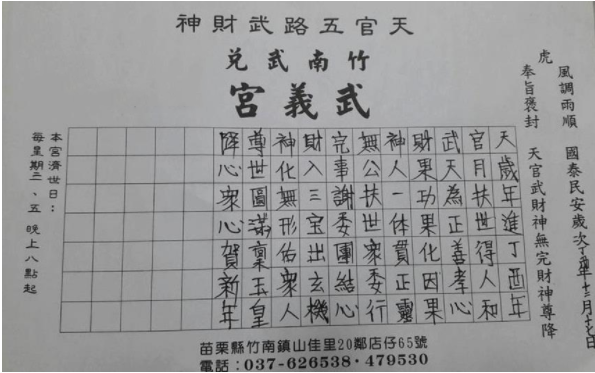 天官五路武財神
竹南武兌
武義宮
虎
風調雨順 國泰民安
奉旨褒封 天官武財神無完財神尊降
天歲年進丁酉年
官月扶世得人和
武天為正善孝心
財果功果化因果
神人一体貫正靈
無公扶世衆委行
完事謝委團結心
財入三宝出玄機
神化無形佑衆人
尊世圖滿稟玉皇
降心衆心賀新年
本宮濟世日：
每星期二、五 晚上八點起
苗栗縣竹南鎮山佳里20鄰店仔65號
電話：037-626538・479530